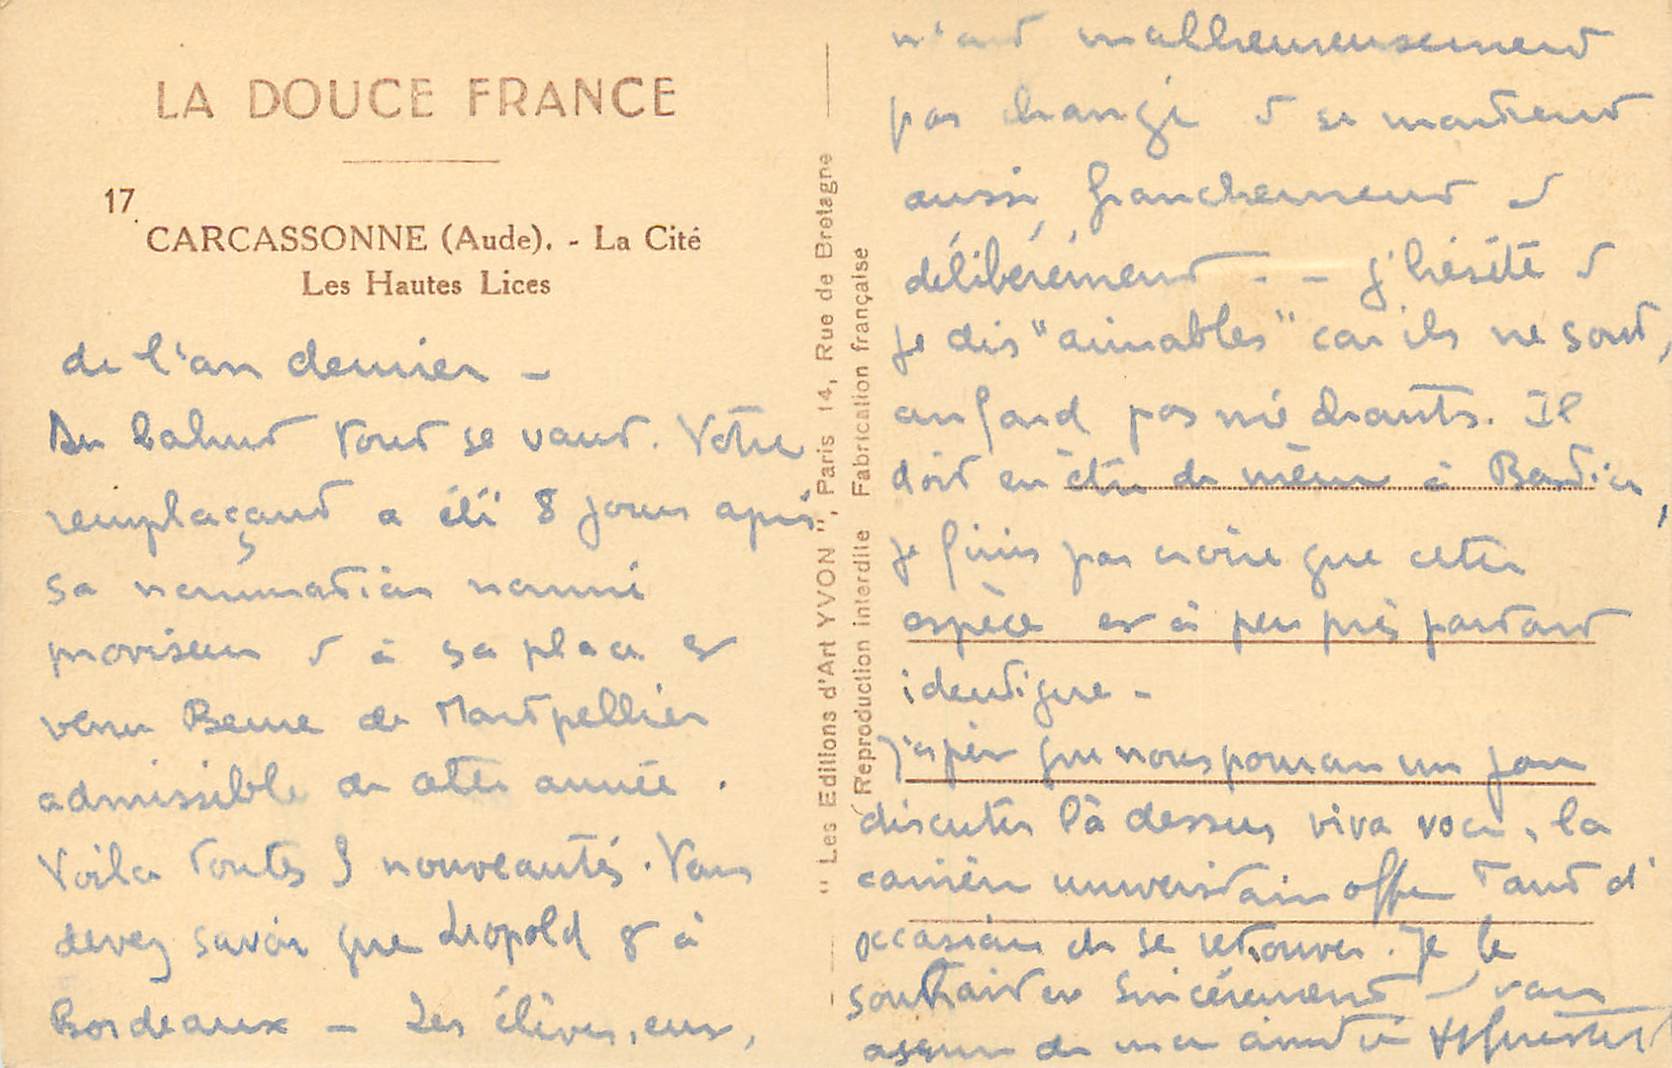 LA DOUCE FRANCE
17
CARCASSONNE (Aude). - La Cité
Les Hautes Lices
de l'an dernier -
Au bahut tout se vaut. Votre
remplaçant a été 8 jours après
sa nomination nommé
proviseur et à sa place est
venu Beune de Montpellier
admissible de cette année.
Voila toutes les nouveautés. Vous
devez savoir que Léopold est à
Bordeaux - Les élèves, eux,
"Les Editions d'Art YVON", Paris 14, Rue de Bretagne
Reproduction interdite Fabrication française
n'ont malheureusement
pas changé et se montrent
aussi franchement et
délibérément - - j'hésite et
je dis "aimables" car ils ne sont,
au fond pas méchants. Il
doit en être de même à
je finis par croire que cette
espèce est à peu près partout
identique -
J'espère que nous pourrons un jour
discuter là dessus viva voce, la
carrière universitaire offre tant d'
occasions de se retrouver. Je le
souhaite sincèrement et vous
assure de mon amitié